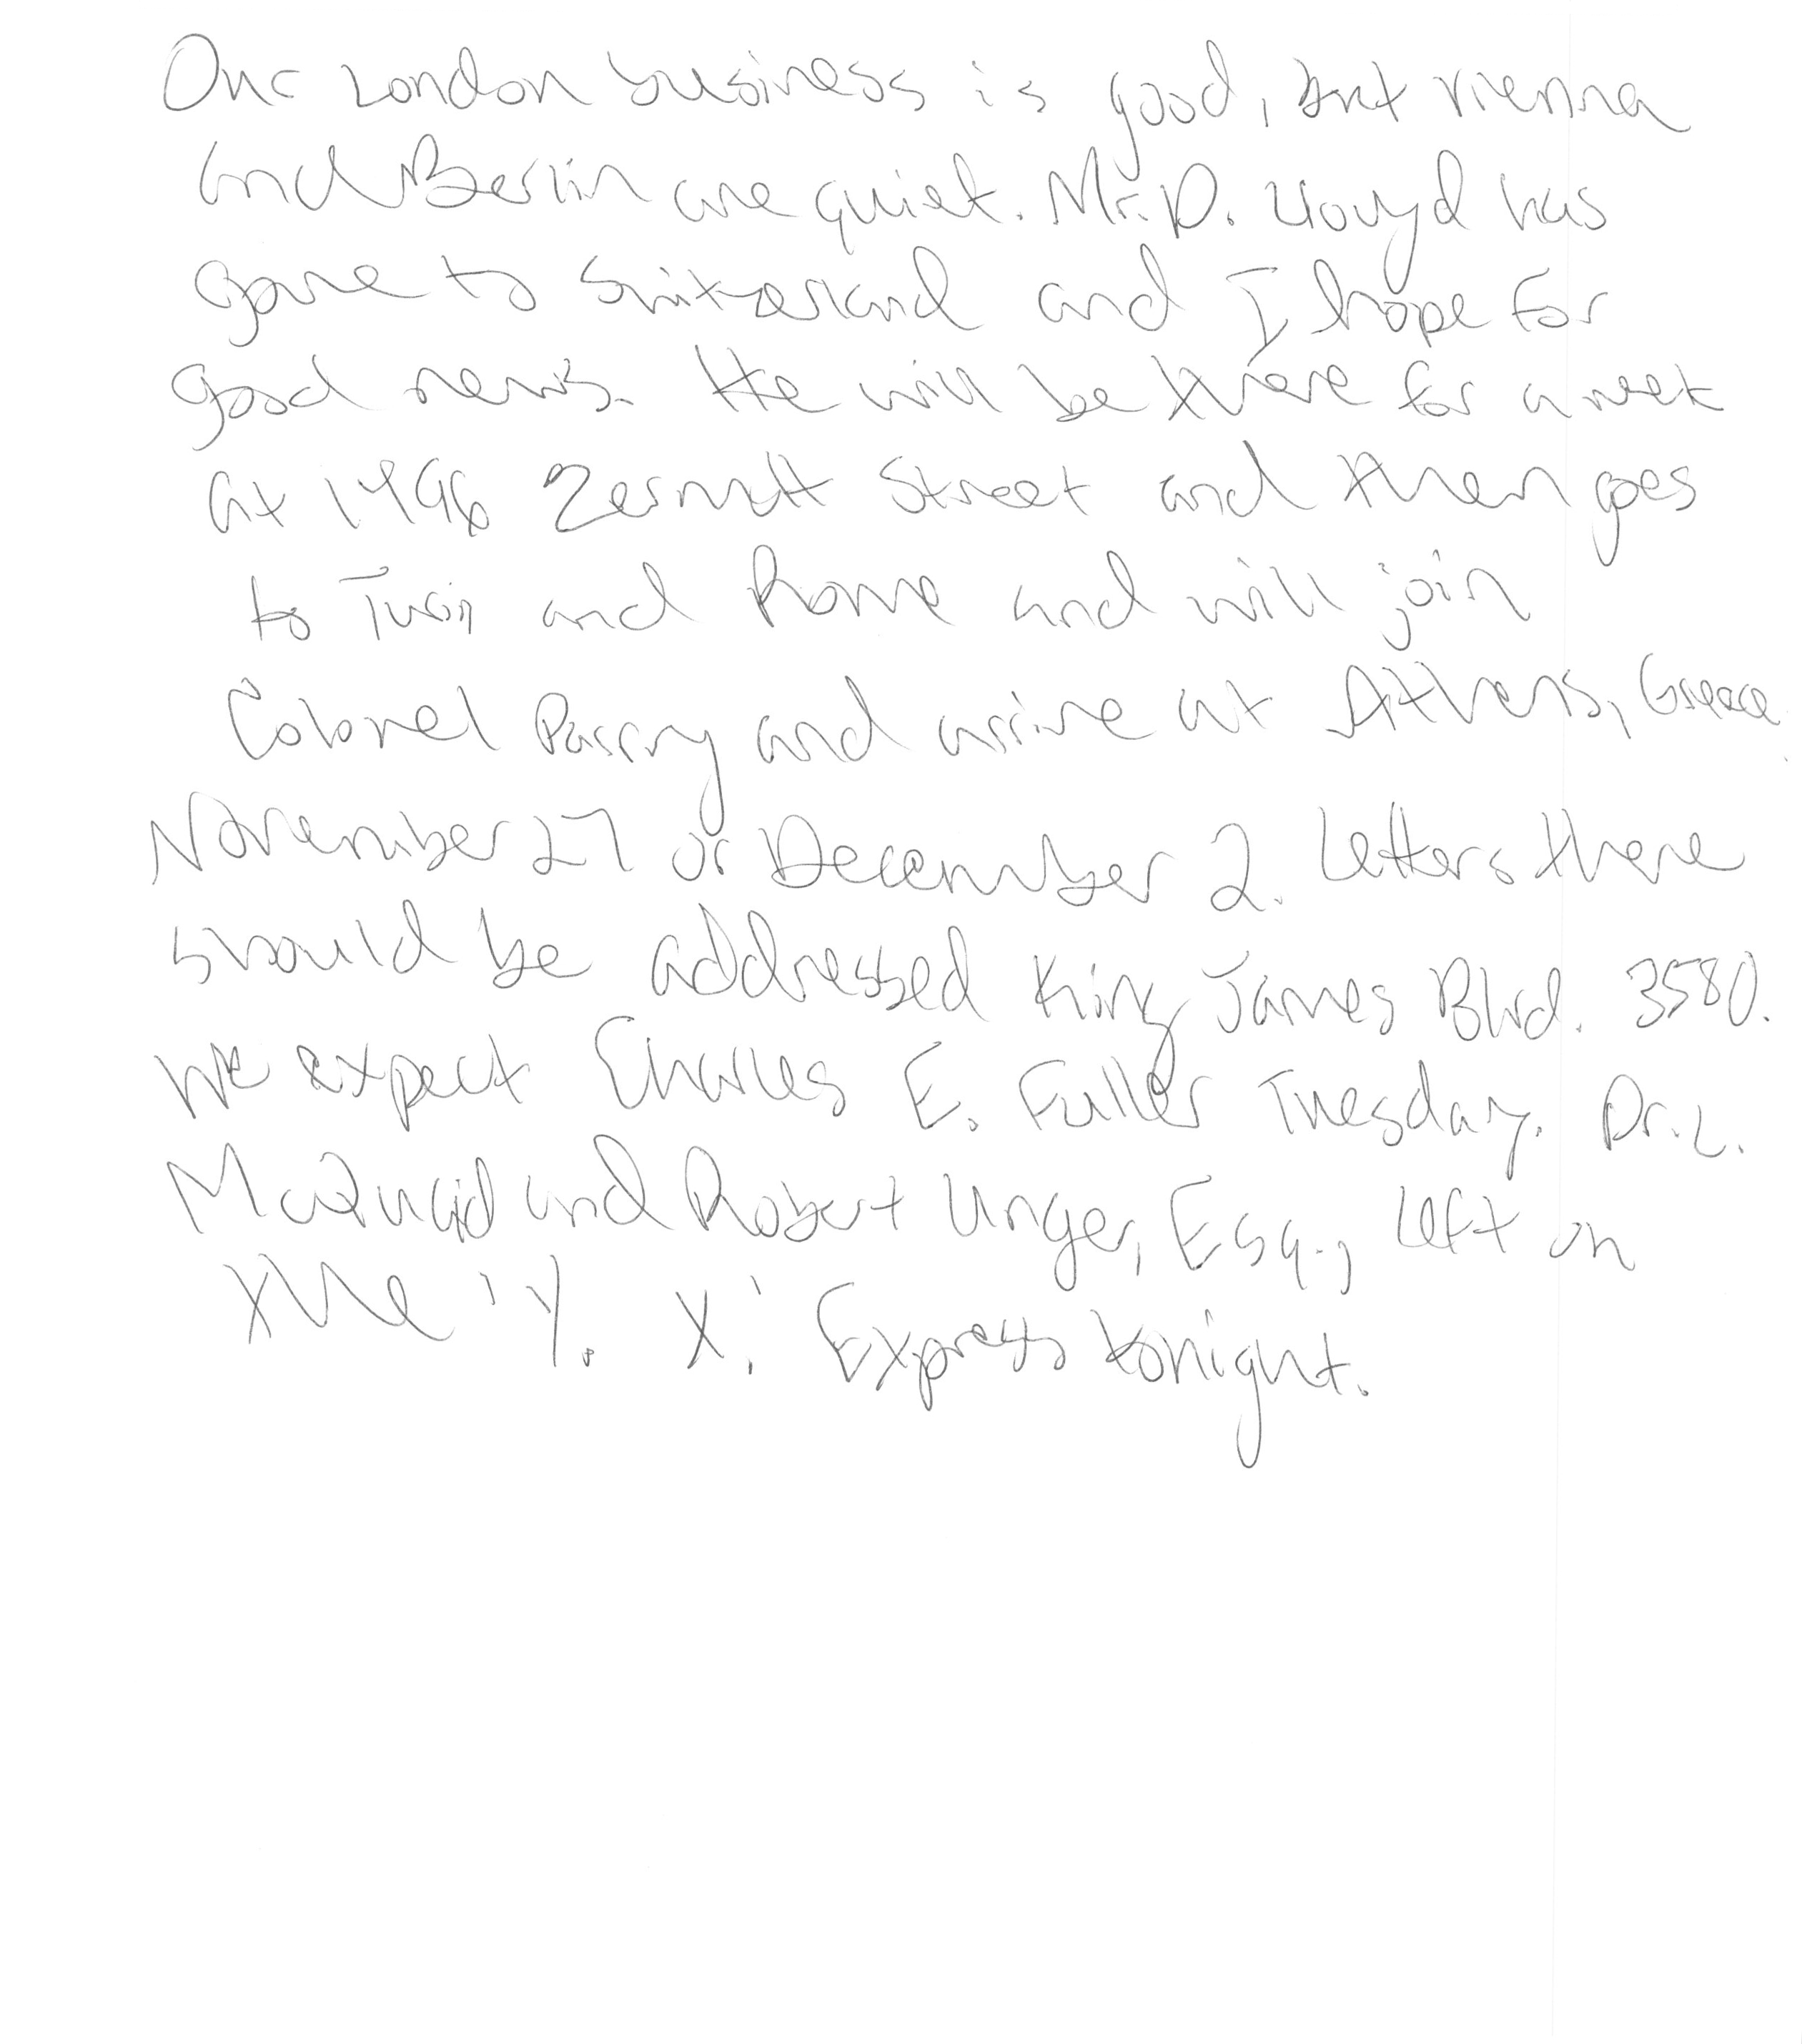 Our London business is good, but Vienna
and Berlin are quiet. Mr. D. Lloyd has
gone to Switzerland and I hope for
good news. He will be there for a week
at 1496 Zermatt Street and then goes
to Turin and Rome and will join
Colonel Parry and arrive at Athens, Greece.
November 27 or December 2. Letters there
should be addressed King James Blvd. 3580.
We expect Charles E. Fuller Tuesday. Dr. L.
McQuaid and Robert Unger, Esq., left on
the 'Y. X.' Express tonight.